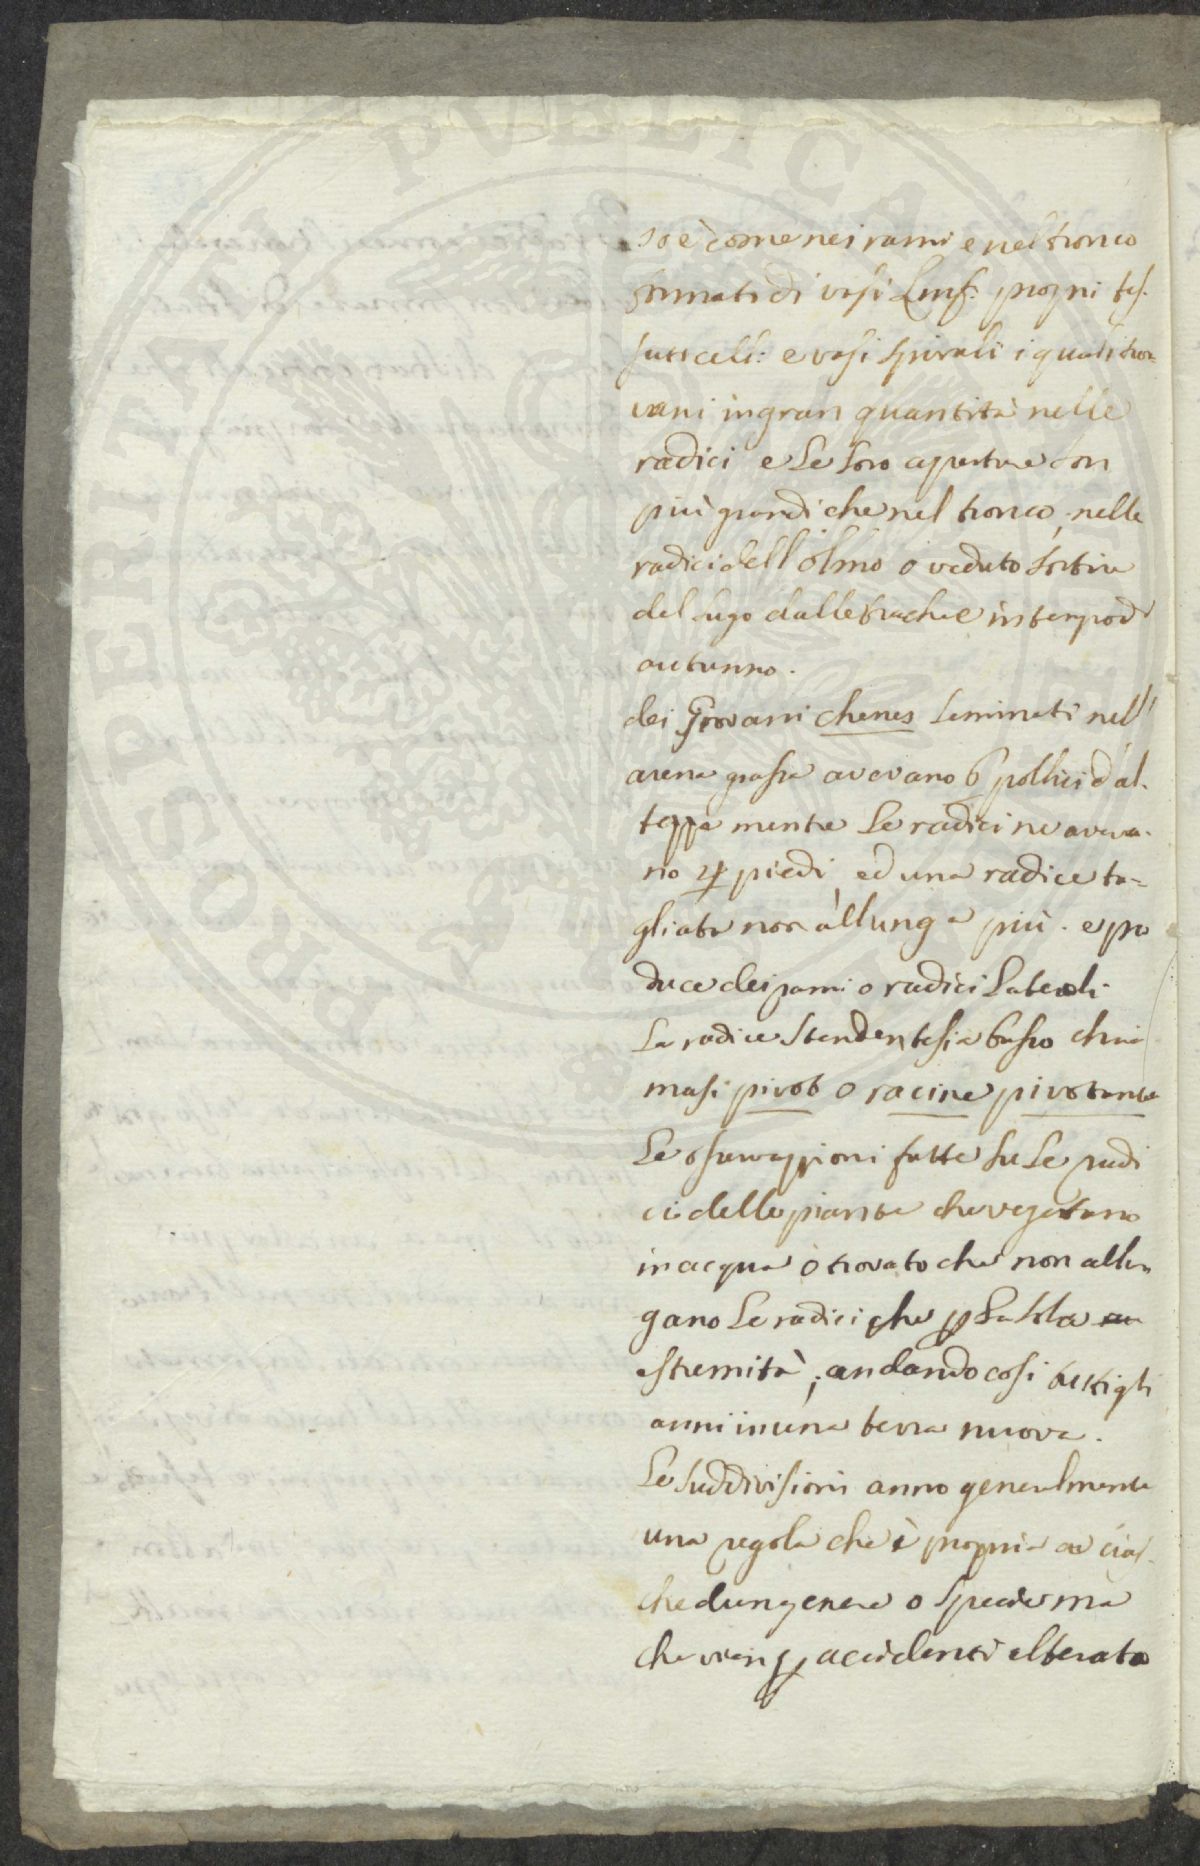 so è come nei rami e nel tronco
formati di vasi Linf: proprj tes.
suti cell: e vasi spirali i quali tro=
vansi in gran quantità nelle
radici e le loro aperture son
più grandi che nel tronco, nelle
radici dell'olmo o veduto sortire
del sugo dalle trachee in tempo d'
autunno.
dei Giovani chenes seminati nell'
arena grassa avevano 6 pollici d'al.
tezza mentre le radici ne aveva.
no 4 piedi, ed una radice ta=
gliata non allunga più. e pro
duce dei rami o radici laterali
La radice stendentesi a basso chia
masi pivot o racine pivotante
Le osservazzioni fatte su le radi
ci delle piante che vegetano
in acqua ò trovato che non allun
gano le radici che p la sola
estremità, andando così tutti gli
anni in una terra nuova.
Le suddivisioni anno generalmente
una regola che è propria a cias.
chedun genere o specie ma
che vien p accidenti alterata
PROPRIETATI PUBLICAE